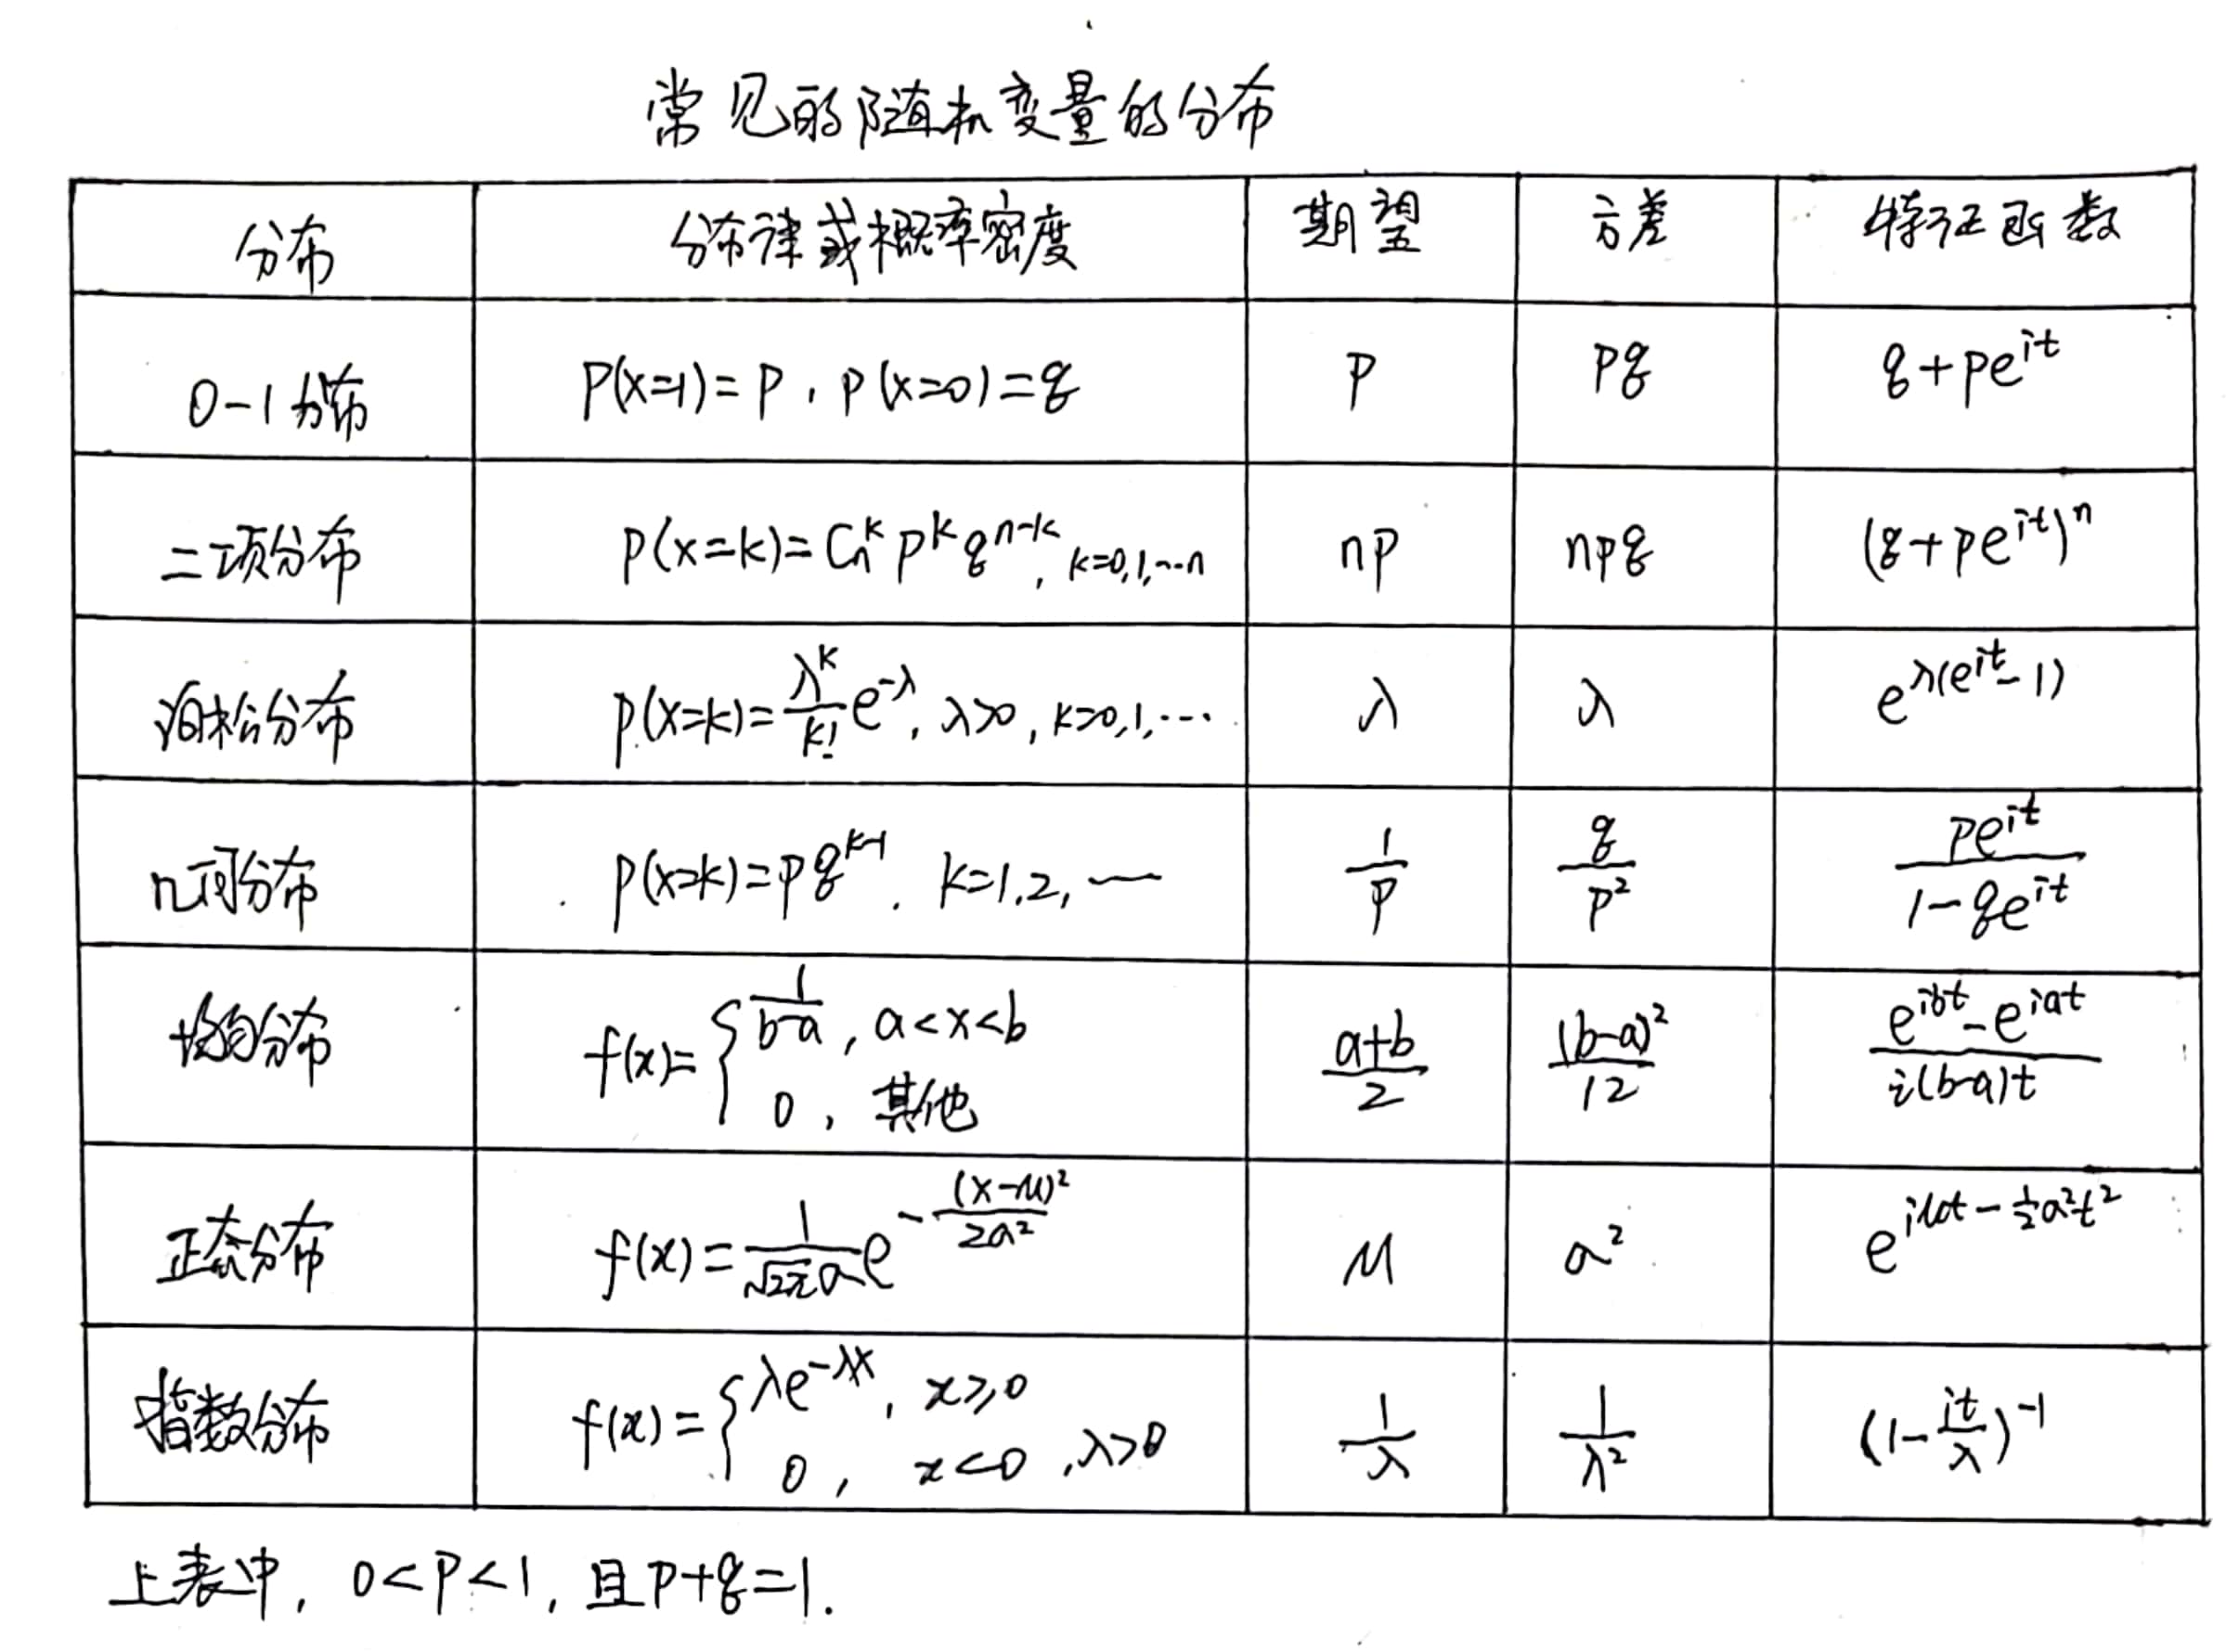 常见的随机变量的分布
分布 分布律或概率密度 期望 方差 特征函数
0-1分布 P(x=1)=P, P(x=0)=q P pq q+pe^{it}
二项分布 P(x=k)=C_n^k p^k q^{n-k}, k=0,1,…n np npq (q+pe^{it})^n
泊松分布 P(x=k)=\frac{λ^k}{k!}e^{-λ}, λ>0, k=0,1,… λ λ e^{λ(e^{it}-1)}
几何分布 P(x=k)=pq^{k-1}, k=1,2,… \frac{1}{p} \frac{q}{p^2} \frac{pe^{it}}{1-qe^{it}}
均匀分布 f(x)={\frac{1}{b-a}, a<x<b \frac{a+b}{2} \frac{(b-a)^2}{12} \frac{e^{ibt}-e^{iat}}{i(b-a)t}
0, 其他
正态分布 f(x)=\frac{1}{\sqrt{2π}σ}e^{-\frac{(x-μ)^2}{2σ^2}} μ σ^2 e^{iμt-\frac{1}{2}σ^2t^2}
指数分布 f(x)={λe^{-λx}, x≥0 \frac{1}{λ} \frac{1}{λ^2} (1-\frac{it}{λ})^{-1}
0, x<0, λ>0
上表中, 0<P<1, 且P+q=1.